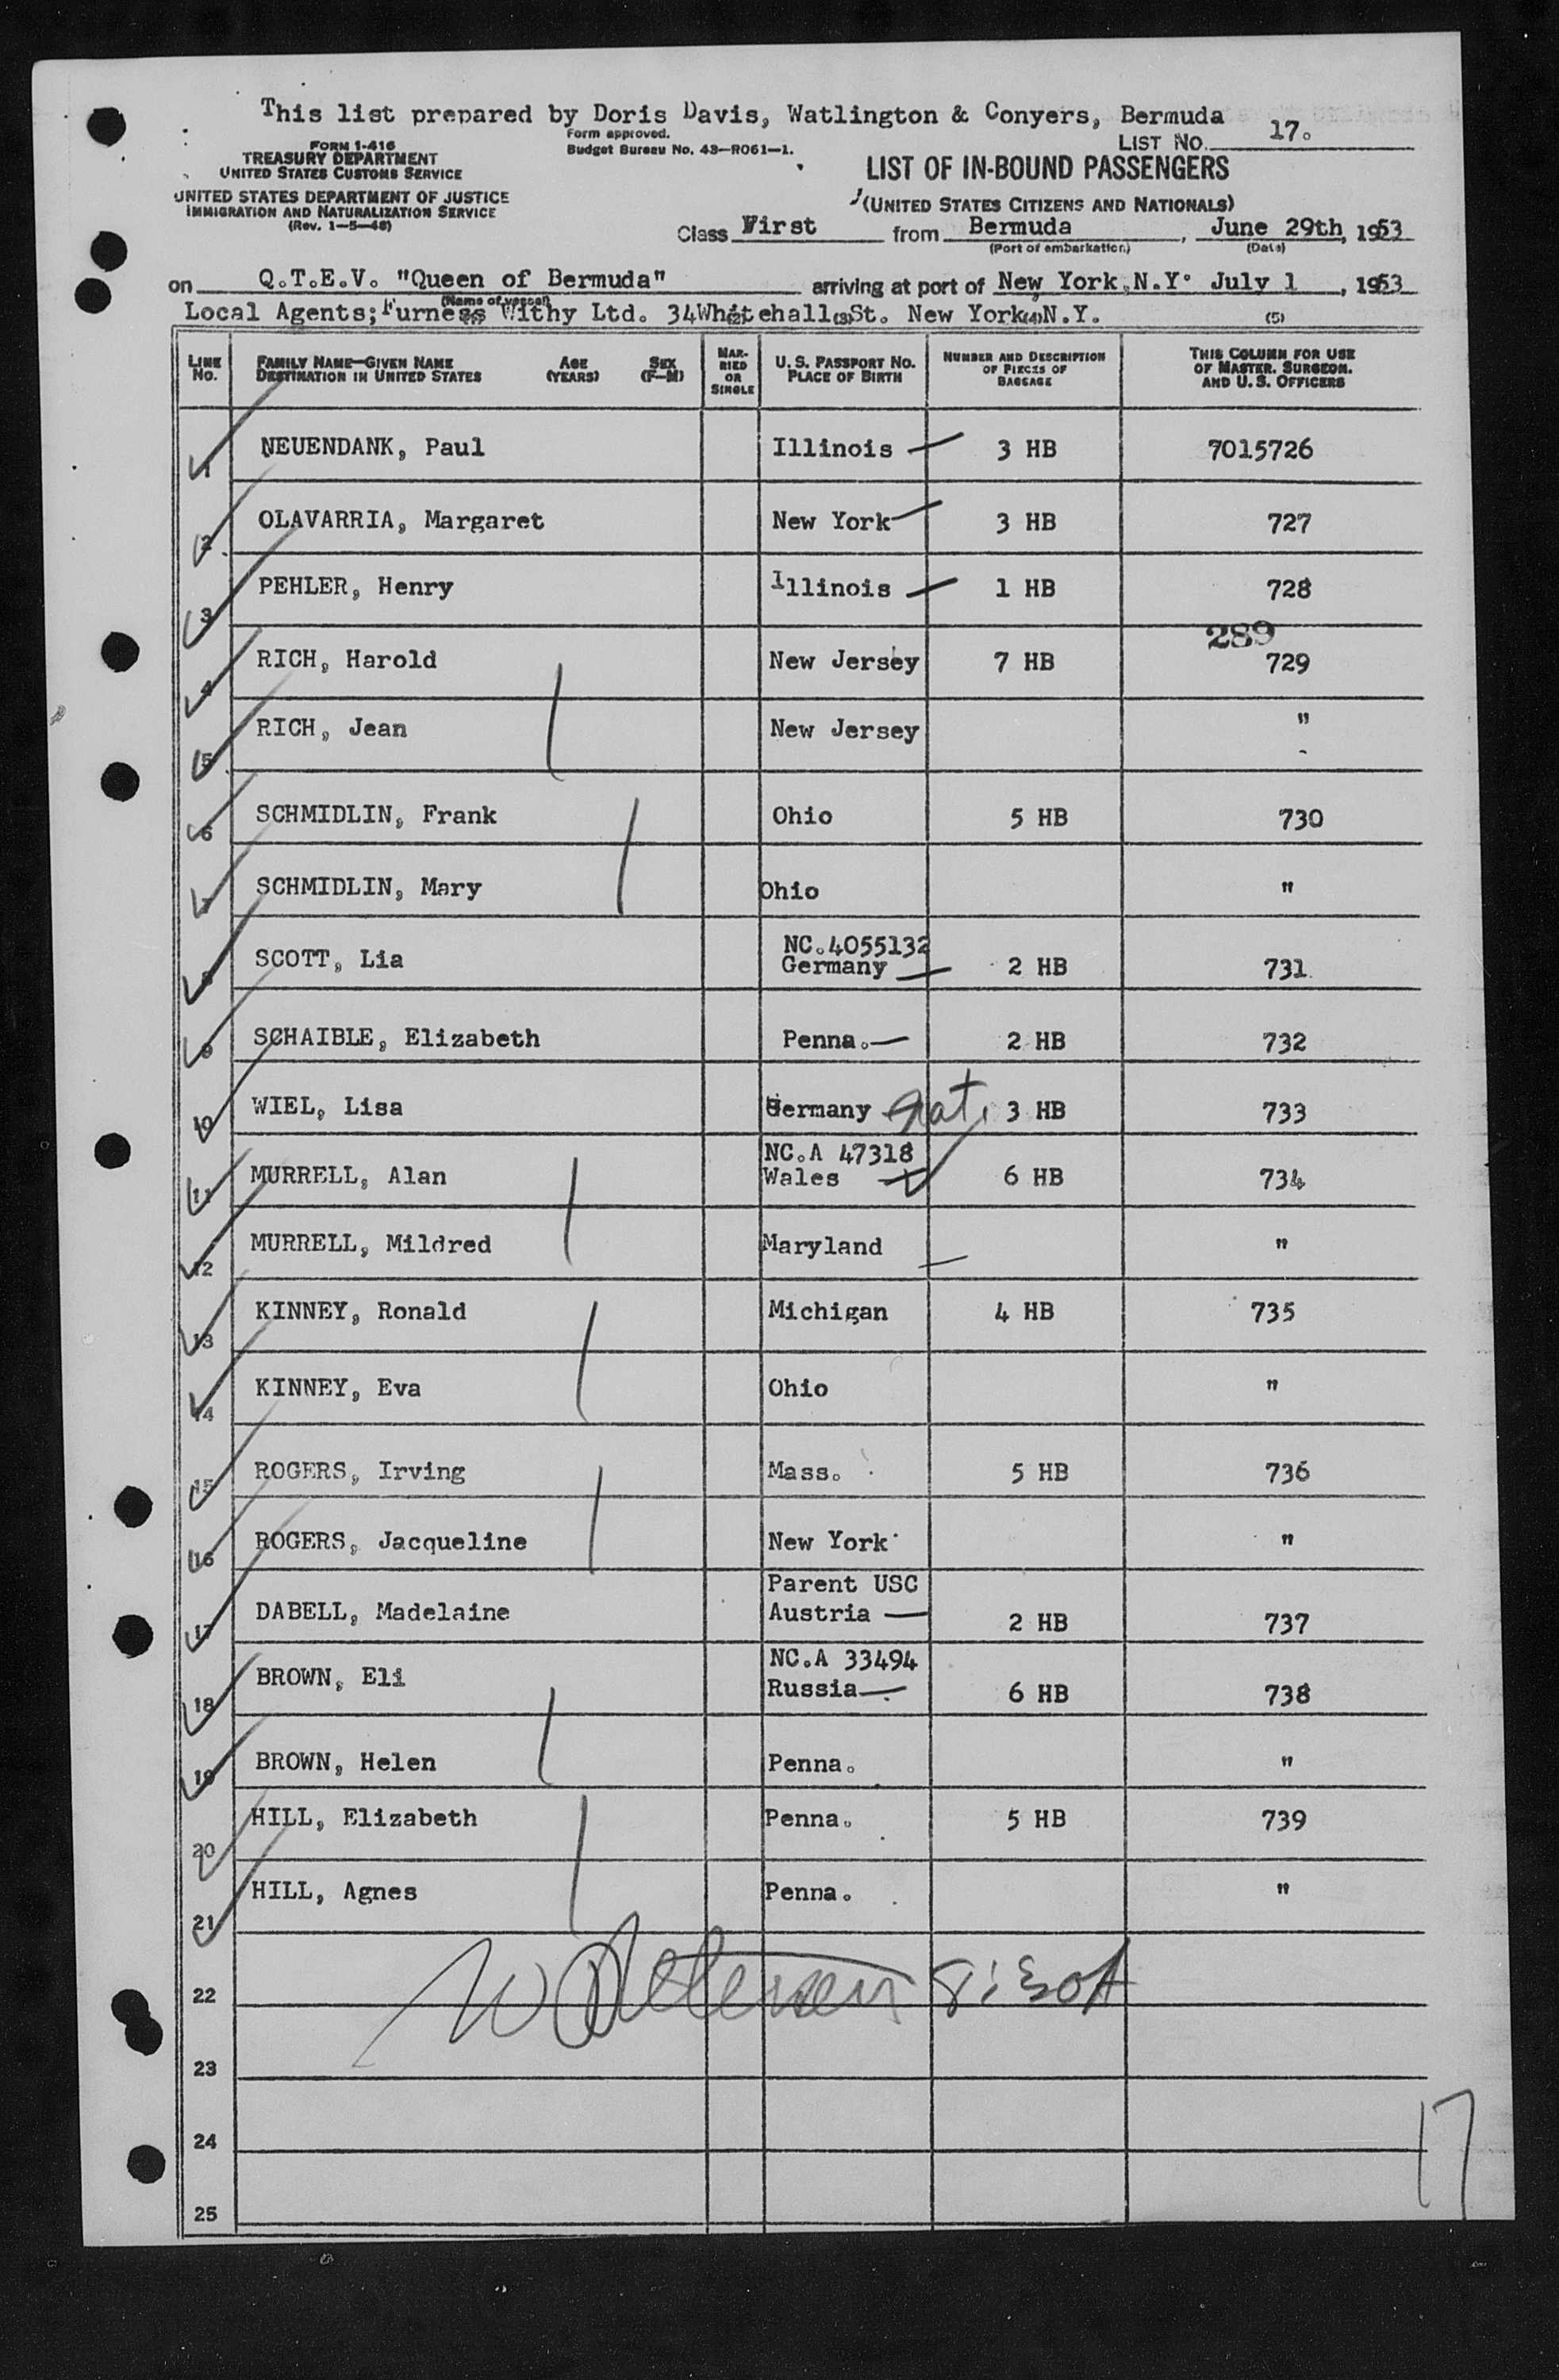 This list prepared by Doris Davis, Watlington & Conyers, Bermuda
Form approved.
Budget Bureau No. 43—R061—1.
LIST NO. 17.
FORM I-416
TREASURY DEPARTMENT
UNITED STATES CUSTOMS SERVICE
UNITED STATES DEPARTMENT OF JUSTICE
IMMIGRATION AND NATURALIZATION SERVICE
(Rev. 1—5—48)
LIST OF IN-BOUND PASSENGERS
(UNITED STATES CITIZENS AND NATIONALS)
Class First from Bermuda, June 29th, 1953
(Port of embarkation) (Date)
on Q.T.E.V. "Queen of Bermuda" arriving at port of New York, N.Y. July 1, 1953
(Name of vessel)
Local Agents; Furness Withy Ltd. 34 Whitehall St. New York, N.Y.
(2) (3) (4) (5)
LINE NO. FAMILY NAME—GIVEN NAME DESTINATION IN UNITED STATES AGE (YEARS) SEX (F—M) MARRIED OR SINGLE U. S. PASSPORT NO. PLACE OF BIRTH NUMBER AND DESCRIPTION OF PIECES OF BAGGAGE THIS COLUMN FOR USE OF MASTER, SURGEON, AND U. S. OFFICERS
1 NEUENDANK, Paul Illinois 3 HB 7015726
2 OLAVARRIA, Margaret New York 3 HB 727
3 PEHLER, Henry Illinois 1 HB 728
289
4 RICH, Harold New Jersey 7 HB 729
5 RICH, Jean New Jersey "
6 SCHMIDLIN, Frank Ohio 5 HB 730
7 SCHMIDLIN, Mary Ohio "
NC.4055132
8 SCOTT, Lia Germany 2 HB 731
9 SCHAIBLE, Elizabeth Penna. 2 HB 732
10 WIEL, Lisa Germany nat. 3 HB 733
NC.A 47318
11 MURRELL, Alan Wales 6 HB 734
12 MURRELL, Mildred Maryland "
13 KINNEY, Ronald Michigan 4 HB 735
14 KINNEY, Eva Ohio "
15 ROGERS, Irving Mass. 5 HB 736
16 ROGERS, Jacqueline New York "
Parent USC
17 DABELL, Madelaine Austria 2 HB 737
NC.A 33494
18 BROWN, Eli Russia 6 HB 738
19 BROWN, Helen Penna. "
20 HILL, Elizabeth Penna. 5 HB 739
21 HILL, Agnes Penna. "
22
23
24
25
17